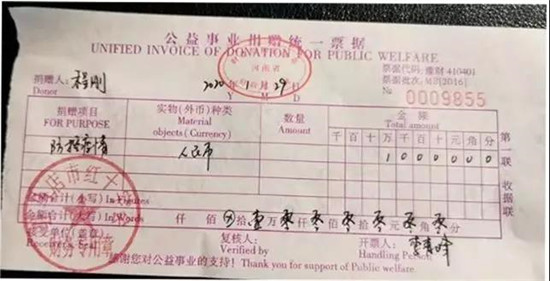 公益事业捐赠统一票据
UNIFIED INVOICE OF DONATION FOR PUBLIC WELFARE
河南省
捐赠人: 程刚 2020年1月29日
Donor Y M D
票据代码: 豫财 410401
0009855
捐赠项目 实物(外币)种类 数量 金额
FOR PURPOSE Material objects (Currency) Amount Total amount
千 百 十 万 千 百 十 元 角 分
防控疫情 人民币 1 0 0 0 0 0 0
第
联
收据联
金额合计(小写)In Figures
金额合计(大写)In Words 仟 佰 拾 壹 万 零 仟 零 佰 零 拾 零 元 零 角 零 分
接受单位(盖章) 复核人: 开票人:
Receiver's Seal Verified by Handling Person
店市红十
财务专用章
感谢您对公益事业的支持! Thank you for support of Public welfare.